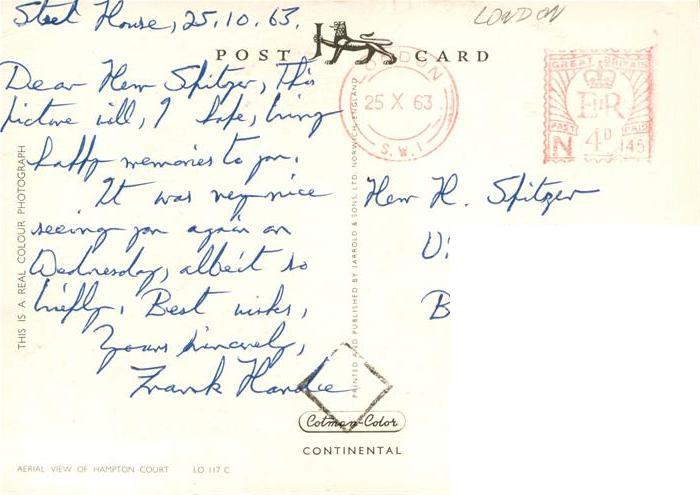 Steet House, 25.10.63.
LONDON
POST CARD
Dear Herr Spitzer, This
picture will, I hope, bring
happy memories to you.
It was very nice
seeing you again on
Wednesday, albeit so
briefly. Best wishes,
Yours sincerely,
Frank Hardie
THIS IS A REAL COLOUR PHOTOGRAPH
AERIAL VIEW OF HAMPTON COURT LO 117 C
PRINTED AND PUBLISHED BY JARROLD & SONS, LTD. NORWICH, ENGLAND
LONDON
25 X 63
S.W.1
GREAT BRITAIN
E II R
POST PAID
4D
N 145
Herr H. Spitzer
B
Cotman-Color
CONTINENTAL